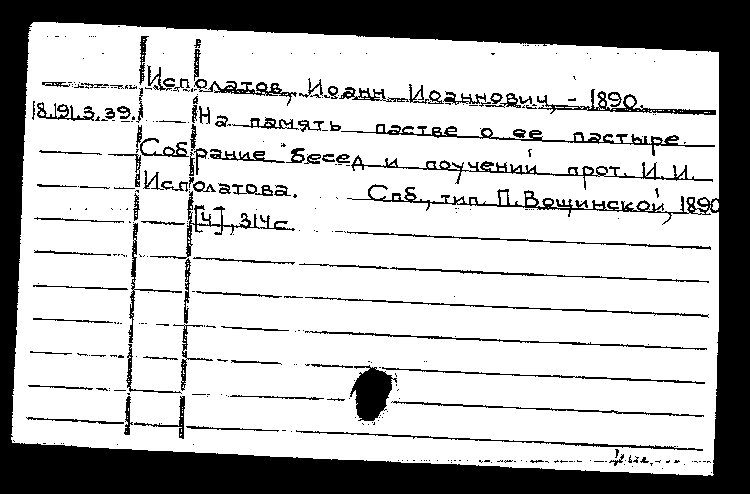 Исполатов, Иоанн Иоаннович, - 1890.
18.191.3.39. На память пастве о ее пастыре.
Собрание бесед и поучений прот. И.И.
Исполатова. Спб., тип. П. Вощинской, 1890
[4], 314 с.